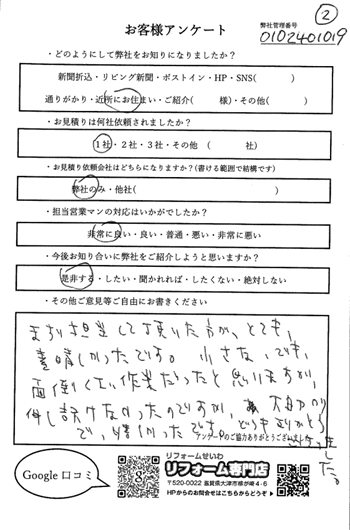 ②
お客様アンケート
弊社管理番号
0102401019
・どのようにして弊社をお知りになりましたか？
新聞折込・リビング新聞・ポストイン・HP・SNS(　　　)
通りがかり・近所にお住まい・ご紹介(　　　様)・その他(　　　)
・お見積りは何社依頼されましたか？
1社・2社・3社・その他 (　　　社)
・お見積り依頼会社はどちらになりますか？(書ける範囲で結構です)
弊社のみ・他社(　　　)
・担当営業マンの対応はいかがでしたか？
非常に良い・良い・普通・悪い・非常に悪い
・今後お知り合いに弊社をご紹介しようと思いますか？
是非する・したい・聞かれれば・したくない・絶対しない
・その他ご意見等ご自由にお書きください
担当して頂いた方が、とても、
素晴しかったです。小さな、でも、
面倒くさい作業だったと思いますが、
申し訳けなかったのですが、
で、嬉しかったです。どうもありがとう
ございました。
アンケートのご協力ありがとうございました
Google 口コミ
リフォームせいわ
リフォーム専門店
〒520-0322 滋賀県大津市
HPからのお問合せはこちらからどうぞ